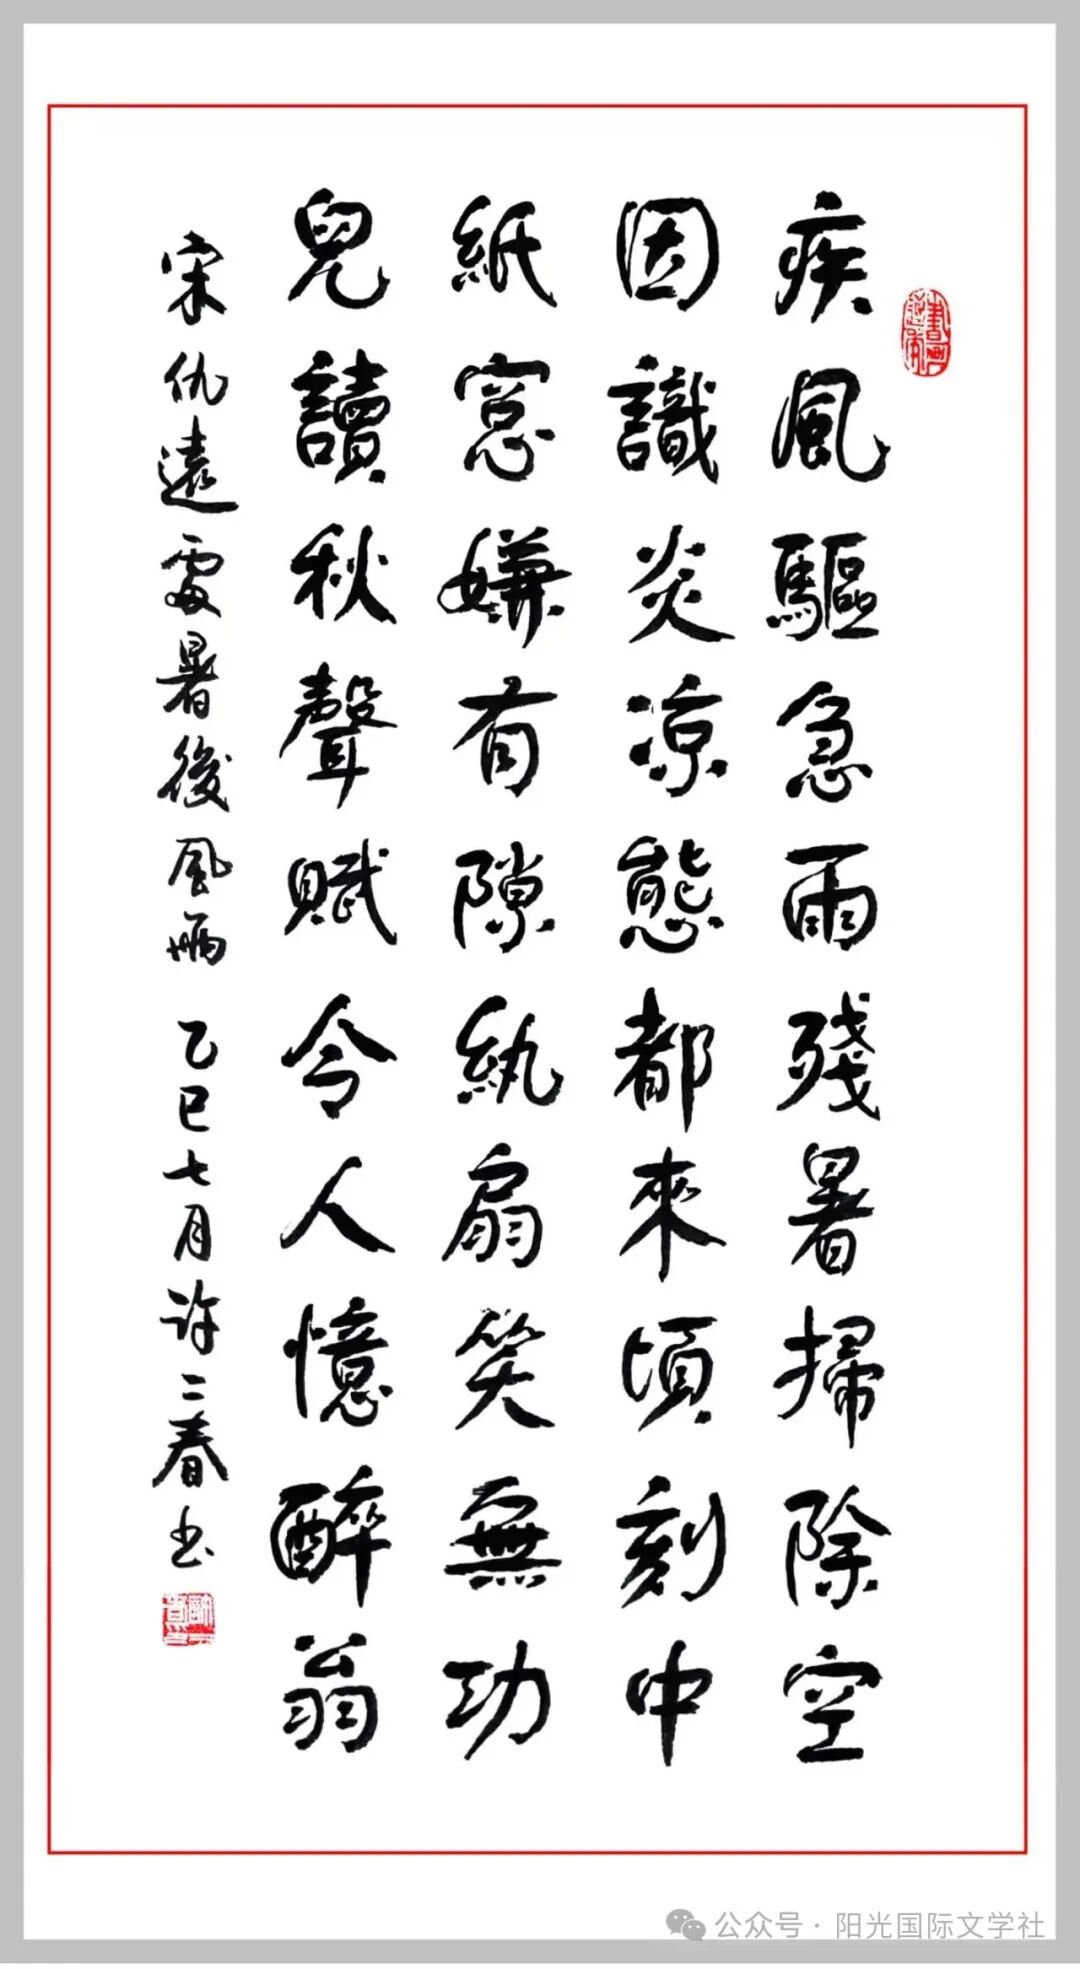 疾風驅急雨殘暑掃除空
因識炎凉態都來頃刻中
紙窓嫌有隙紈扇笑無功
兒讀秋聲賦令人憶醉翁
宋仇遠處暑後風雨 乙巳七月许二春书
公众号·阳光国际文学社